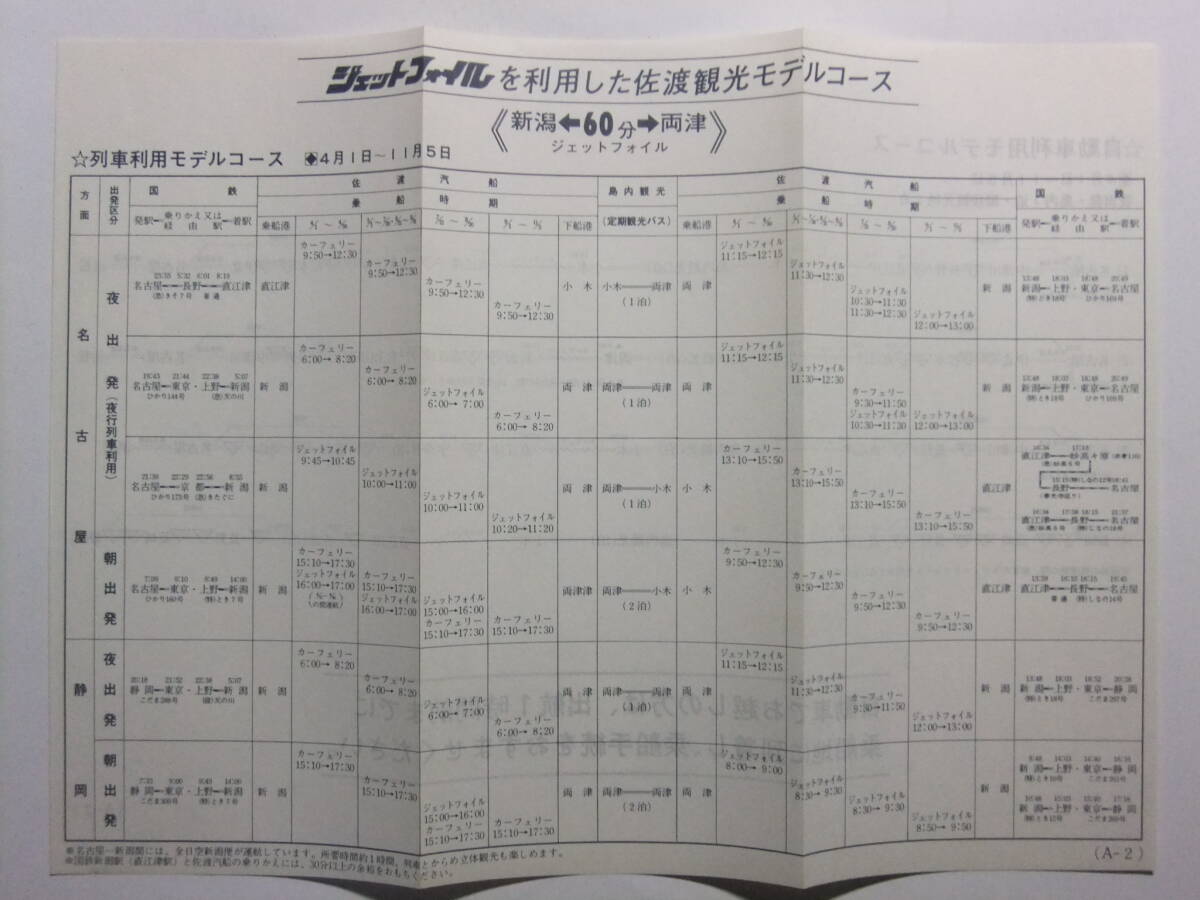 ジェットフォイルを利用した佐渡観光モデルコース
《新潟←60分→両津》
ジェットフォイル
☆列車利用モデルコース ◆4月1日～11月5日
方面 出発区分 国鉄 佐渡汽船 島内観光 佐渡汽船 国鉄
乗船時期 乗船時期
発駅 乗りかえ又は経由駅 着駅 乗船港 下船港 (定期観光バス) 乗船港 下船港 発駅 乗りかえ又は経由駅 着駅
名古屋
夜出発(夜行列車利用)
23:55 5:32 6:01 8:19
名古屋―長野―直江津
(急)きそ7号 普通
直江津
カーフェリー 9:50→12:30
カーフェリー 9:50→12:30
カーフェリー 9:50→12:30
カーフェリー 9:50→12:30
小木
小木―両津
(1泊)
両津
ジェットフォイル 11:15→12:15
ジェットフォイル 11:30→12:30
ジェットフォイル 10:30→11:30 11:30→12:30
ジェットフォイル 12:00→13:00
新潟
13:48 18:03 18:48 20:49
新潟―上野・東京―名古屋
(特)とき18号 ひかり169号
19:43 21:44 22:38 5:07
名古屋―東京・上野―新潟
ひかり144号 (急)天の川
新潟
カーフェリー 6:00→8:20
カーフェリー 6:00→8:20
ジェットフォイル 6:00→7:00
カーフェリー 6:00→8:20
両津
両津―両津
(1泊)
両津
ジェットフォイル 11:15→12:15
ジェットフォイル 11:30→12:30
カーフェリー 9:30→11:50
ジェットフォイル 10:30→11:30
ジェットフォイル 12:00→13:00
新潟
13:48 18:03 18:48 20:49
新潟―上野・東京―名古屋
(特)とき18号 ひかり169号
名古屋―京都―新潟
ひかり173号 (急)きたぐに
新潟
ジェットフォイル 9:45→10:45
ジェットフォイル 10:00→11:00
ジェットフォイル 10:00→11:00
ジェットフォイル 10:20→11:20
両津
両津―小木
(1泊)
小木
カーフェリー 13:10→15:50
カーフェリー 13:10→15:50
カーフェリー 13:10→15:50
カーフェリー 13:10→15:50
直江津
直江津―妙高々原
長野―名古屋
直江津―長野―名古屋
朝出発
7:09 9:10 9:49 14:00
名古屋―東京・上野―新潟
ひかり160号 (特)とき7号
新潟
カーフェリー 15:10→17:30
ジェットフォイル 16:00→17:00
カーフェリー 15:10→17:30
ジェットフォイル 16:00→17:00
ジェットフォイル 15:00→16:00
カーフェリー 15:10→17:30
カーフェリー 15:10→17:30
両津津
両津―小木
(2泊)
小木
カーフェリー 9:50→12:30
カーフェリー 9:50→12:30
カーフェリー 9:50→12:30
カーフェリー 9:50→12:30
直江津
直江津―長野―名古屋
普通 (特)しなの14号
静岡
夜出発
20:18 21:52 22:38 5:07
静岡―東京・上野―新潟
(急)天の川
新潟
カーフェリー 6:00→8:20
カーフェリー 6:00→8:20
ジェットフォイル 6:00→7:00
カーフェリー 6:00→8:20
両津
両津―両津
(1泊)
両津
ジェットフォイル 11:15→12:15
ジェットフォイル 11:30→12:30
カーフェリー 9:30→11:50
ジェットフォイル 12:00→13:00
新潟
13:48 18:03 18:52 20:28
新潟―上野・東京―静岡
(特)とき18号
朝出発
7:32 9:00 9:49 14:00
静岡―東京・上野―新潟
(特)とき7号
新潟
カーフェリー 15:10→17:30
カーフェリー 15:10→17:30
ジェットフォイル 15:00→16:00
カーフェリー 15:10→17:30
カーフェリー 15:10→17:30
両津
両津―両津
(2泊)
両津
ジェットフォイル 8:00→9:00
ジェットフォイル 8:30→9:30
ジェットフォイル 8:30→9:30
ジェットフォイル 8:50→9:50
新潟
新潟―上野・東京―静岡
新潟―上野・東京―静岡
※名古屋―新潟間には、全日空新潟便が運航しています。所要時間約1時間、列車とからめ立体観光も楽しめます。
※国鉄新潟駅(直江津駅)と佐渡汽船の乗りかえには、30分以上の余裕をおもちください。
(A-2)